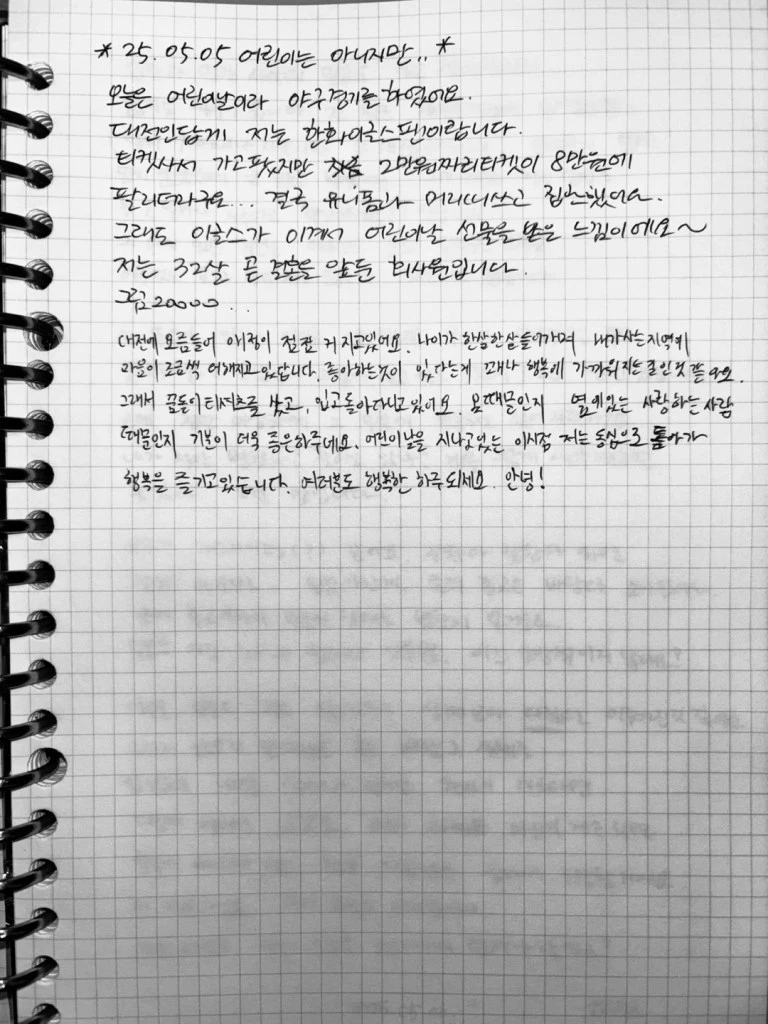 * 25. 05. 05 어린이는 아니지만.. *
오늘은 어린이날이라 야구경기를 하였어요.
대전인답게 저는 한화이글스팬이랍니다.
티켓사서 가고팠지만 2만원짜리티켓이 8만원에
팔리더라구요... 결국 유니폼과 머리띠쓰고 집관했어요.
그래도 이글스가 이겨서 어린이날 선물을 받은 느낌이에요~
저는 32살 곧 결혼을 앞둔 회사원입니다.
그럼 20000...
대전에 요즘들어 애정이 점점 커지고있어요. 나이가 한살한살들어가며 내가사는지역에
마음이 조금씩 더해지고있답니다. 좋아하는것이 있다는게 꽤나 행복에 가까워지는 길인것 같아요.
그래서 꿈돌이티셔츠를 샀고, 입고돌아다니고있어요. 옷때문인지 옆에있는 사랑하는사람
때문인지 기분이 더욱 좋은하루네요. 어린이날을 지나고있는 이시점 저는 동심으로 돌아가
행복을 즐기고있습니다. 여러분도 행복한 하루되세요. 안녕!